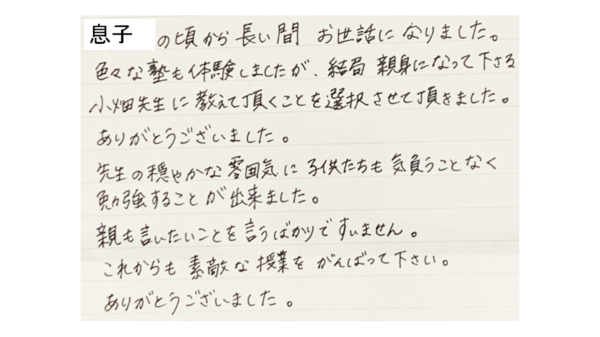 息子の頃から長い間 お世話になりました。
色々な塾も体験しましたが、結局 親身になって下さる
小畑先生に教えて頂くことを選択させて頂きました。
ありがとうございました。
先生の穏やかな雰囲気に子供たちも気負うことなく
勉強することが出来ました。
親も言いたいことを言うばかりですいません。
これからも素敵な授業をがんばって下さい。
ありがとうございました。